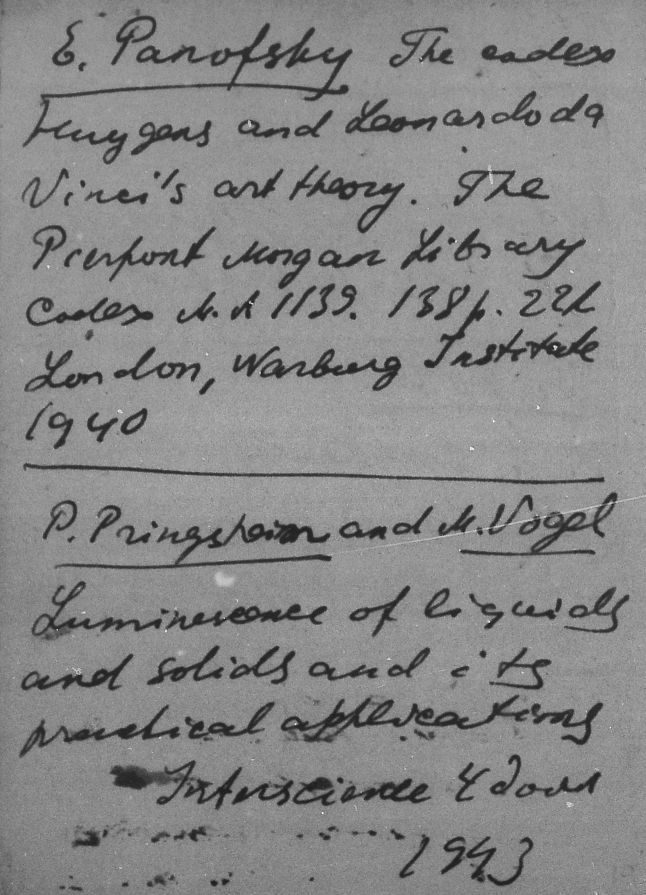 E. Panofsky The codex
Huygens and Leonardo da
Vinci's art theory. The
Pierpont Morgan Library
Codex M.A 1139. 138 p. 22
London, Warburg Institute
1940
P. Pringsheim and M. Vogel
Luminescence of liquids
and solids and its
practical applications
Interscience
1943